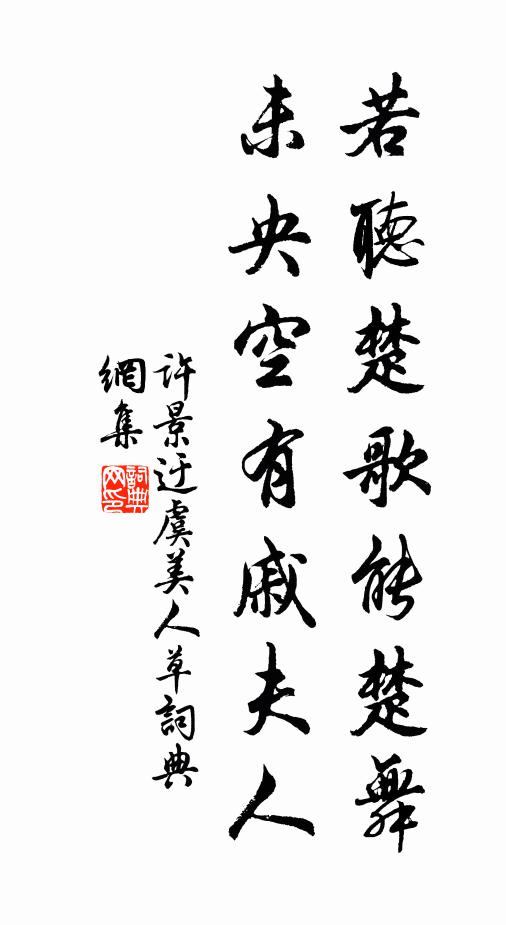 若聽楚歌能楚舞
未央空有戚夫人
許景迂虞美人草詞典
網集
詞典網印